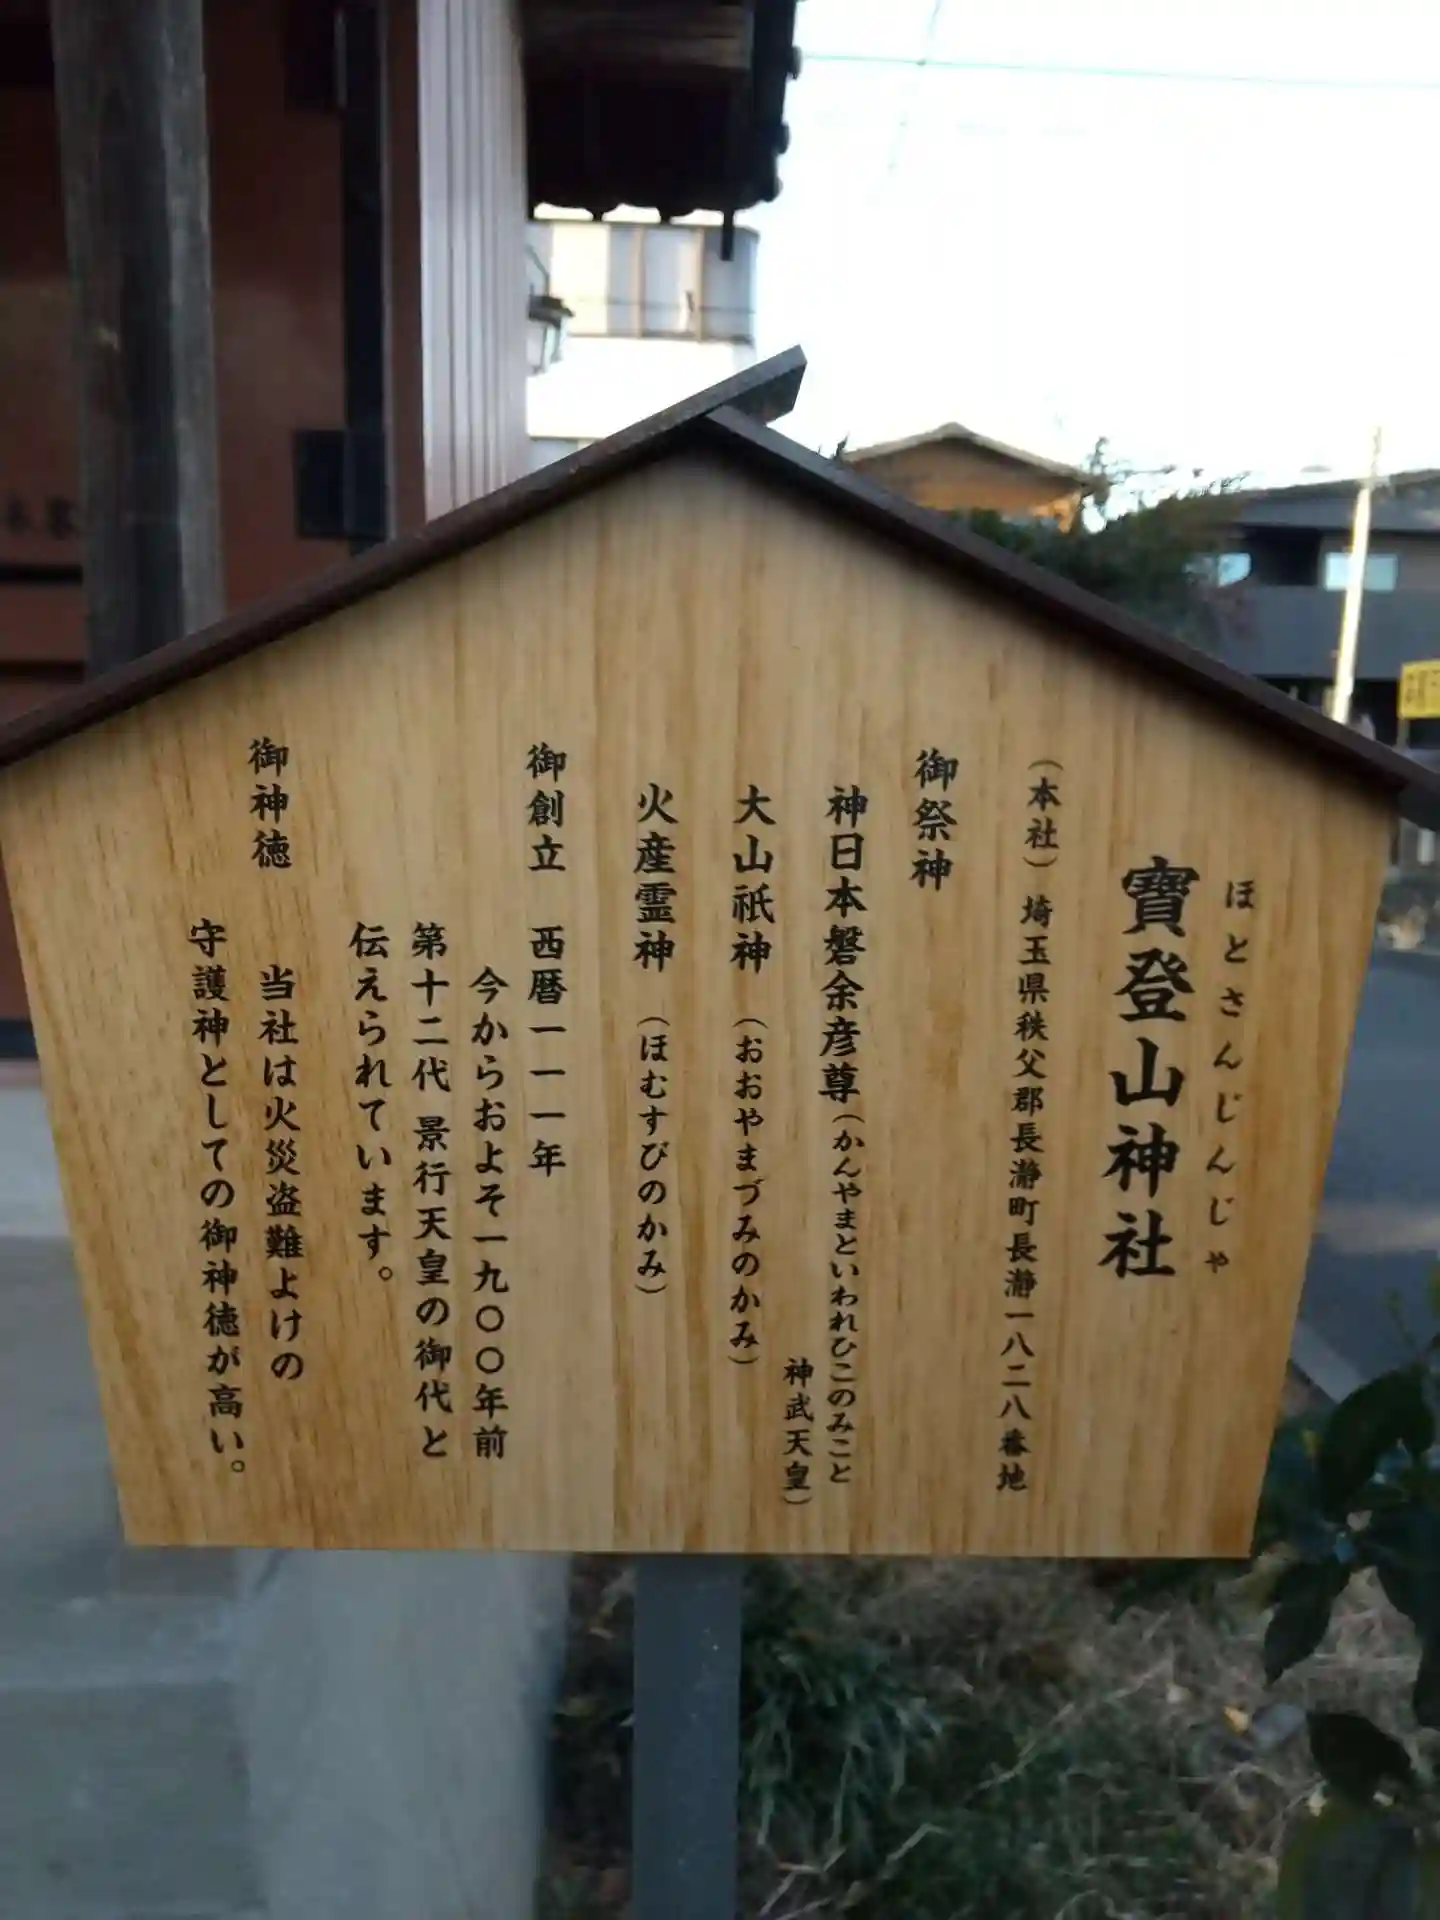 ほとさんじんじゃ
寶登山神社
（本社）埼玉県秩父郡長瀞町長瀞一八二八番地
御祭神
神日本磐余彦尊（かんやまといわれひこのみこと
神武天皇）
大山祇神（おおやまづみのかみ）
火産霊神（ほむすびのかみ）
御創立　西暦一一一年
今からおよそ一九〇〇年前
第十二代 景行天皇の御代と
伝えられています。
御神徳
当社は火災盗難よけの
守護神としての御神徳が高い。